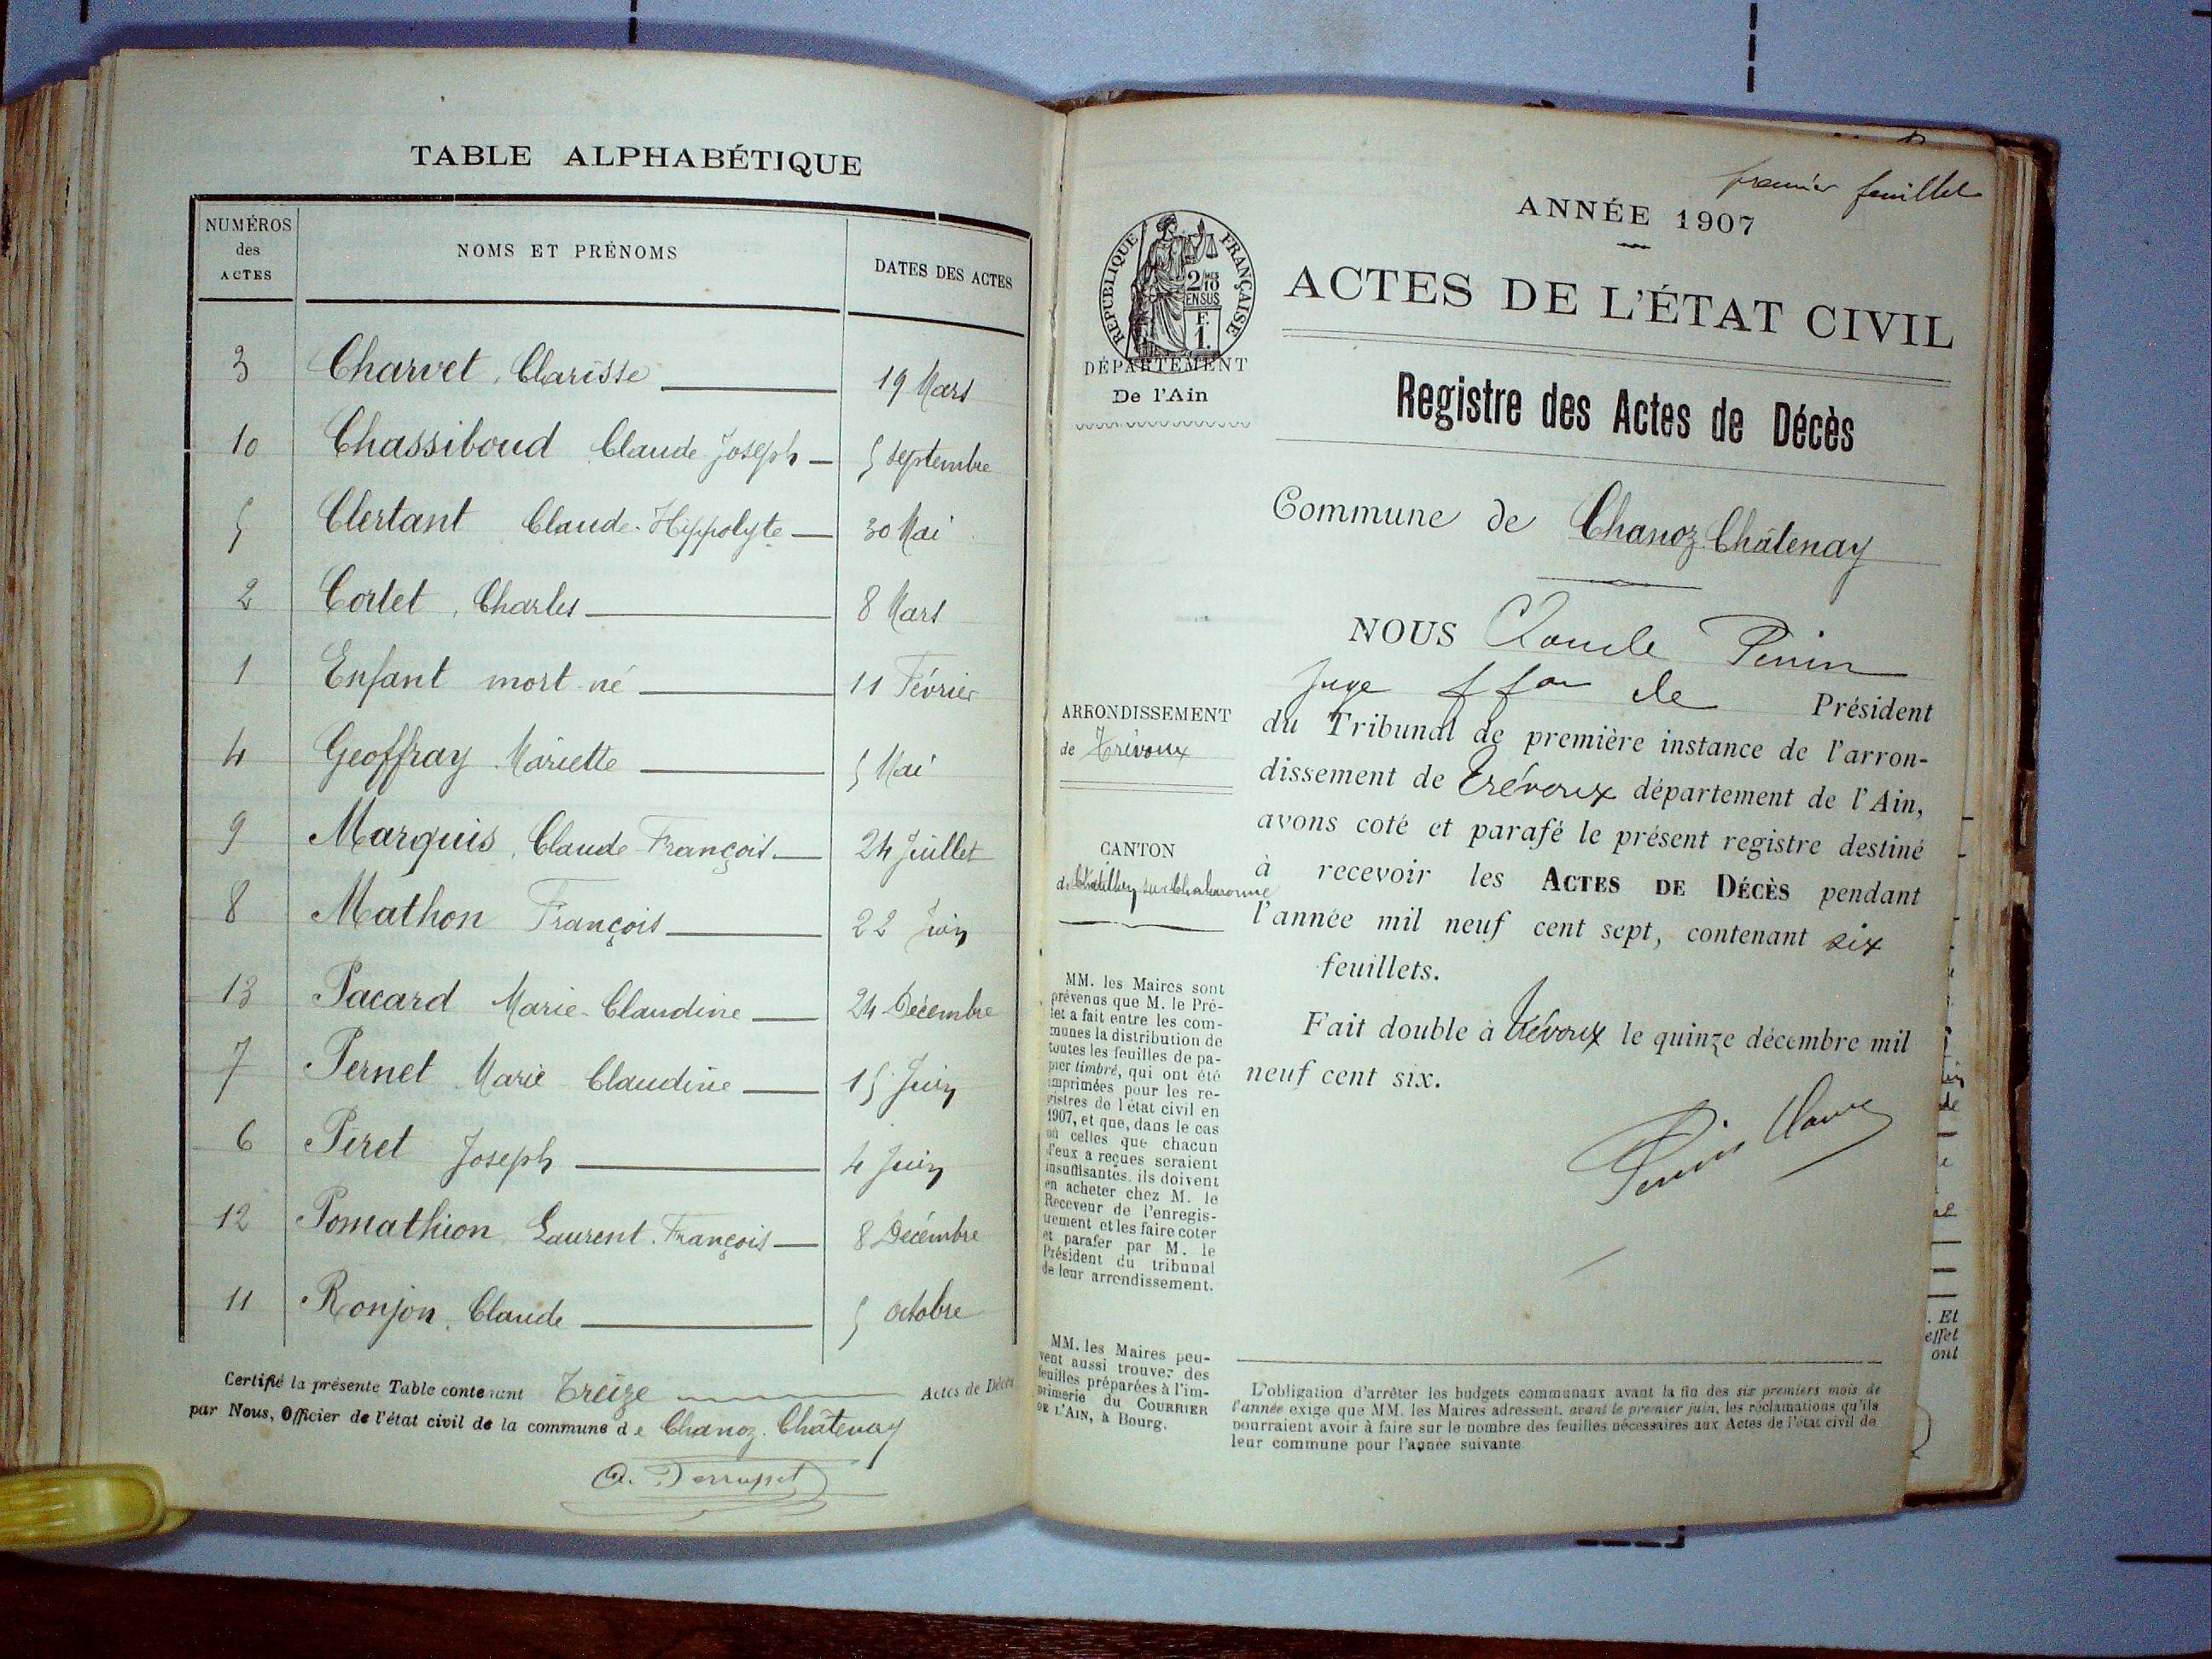 TABLE ALPHABÉTIQUE
NUMÉROS des ACTES NOMS ET PRÉNOMS DATES DES ACTES
3 Charvet Clarisse 19 Mars
10 Chassiboud Claude Joseph 5 septembre
5 Clertant Claude-Hippolyte 30 Mai
2 Cortet, Charles 8 Mars
1 Enfant mort-né 11 Février
4 Geoffray Mariette 5 Mai
9 Marquis, Claude François 24 Juillet
8 Mathon François 22 Juin
13 Pacard Marie-Claudine 24 Décembre
7 Pernet Marie Claudine 15 Juin
6 Piret Joseph 4 Juin
12 Pomathion Laurent-François 8 Décembre
11 Ronjon, Claude 5 octobre
Certifié la présente Table contenant Treize Actes de Décès
par Nous, Officier de l'état civil de la commune de Chanoz-Châtenay
premier feuillet
ANNÉE 1907
RÉPUBLIQUE FRANÇAISE
2/10 EN SUS
F. 1.
ACTES DE L'ÉTAT CIVIL
DÉPARTEMENT
De l'Ain
Registre des Actes de Décès
Commune de Chanoz Châtenay
NOUS Claude Perrin
Juge ffon de Président
du Tribunal de première instance de l'arron-
dissement de Trévoux département de l'Ain,
avons coté et parafé le présent registre destiné
à recevoir les ACTES DE DÉCÈS pendant
l'année mil neuf cent sept, contenant six
feuillets.
Fait double à Trévoux le quinze décembre mil
neuf cent six.
ARRONDISSEMENT
de Trévoux
CANTON
de Châtillon sur Chalaronne
MM. les Maires sont
prévenus que M. le Pré-
fet a fait entre les com-
munes la distribution de
toutes les feuilles de pa-
pier timbré, qui ont été
imprimées pour les re-
gistres de l'état civil en
1907, et que, dans le cas
où celles que chacun
d'eux a reçues seraient
insuffisantes, ils doivent
en acheter chez M. le
Receveur de l'enregis-
trement et les faire coter
et parafer par M. le
Président du tribunal
de leur arrondissement.
MM. les Maires peu-
vent aussi trouver des
feuilles préparées à l'im-
primerie du COURRIER
DE L'AIN, à Bourg.
L'obligation d'arrêter les budgets communaux avant la fin des six premiers mois de
l'année exige que MM. les Maires adressent, avant le premier juin, les réclamations qu'ils
pourraient avoir à faire sur le nombre des feuilles nécessaires aux Actes de l'état civil de
leur commune pour l'année suivante
. Et
effet
ont